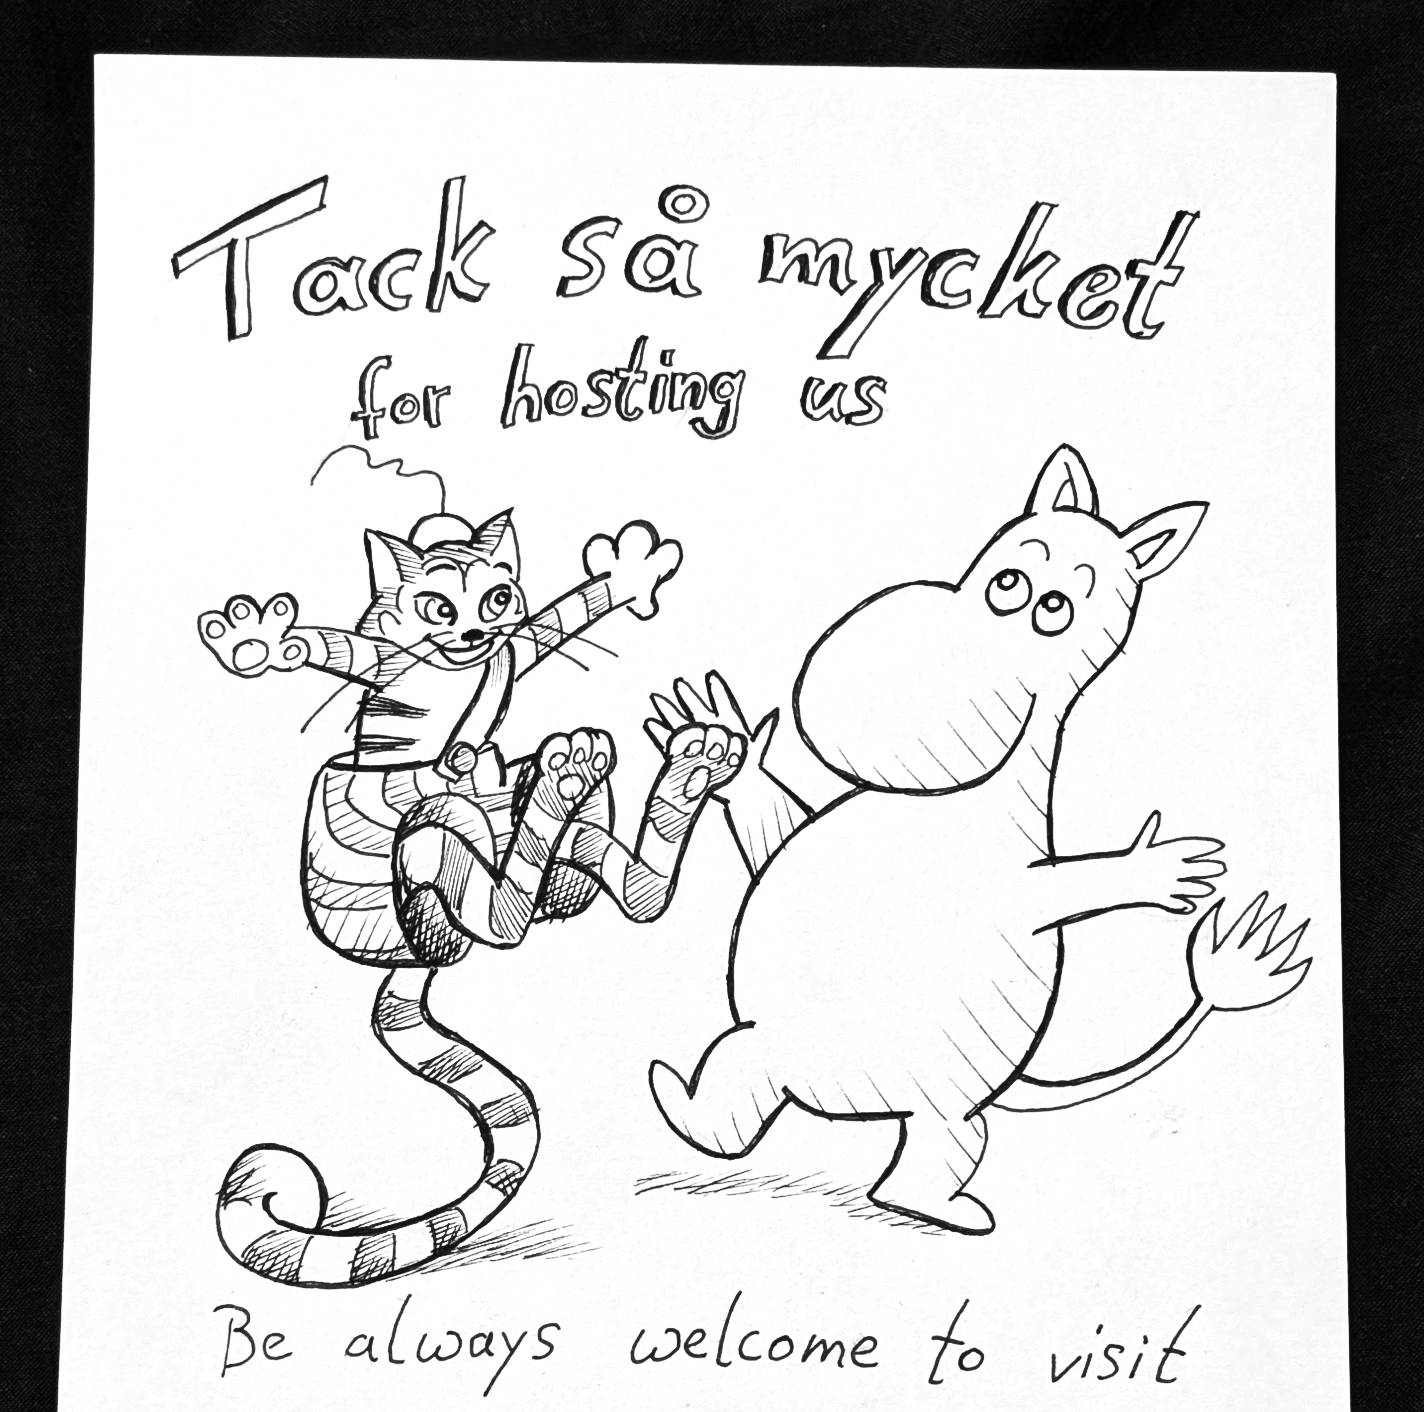 Tack så mycket
for hosting us
Be always welcome to visit